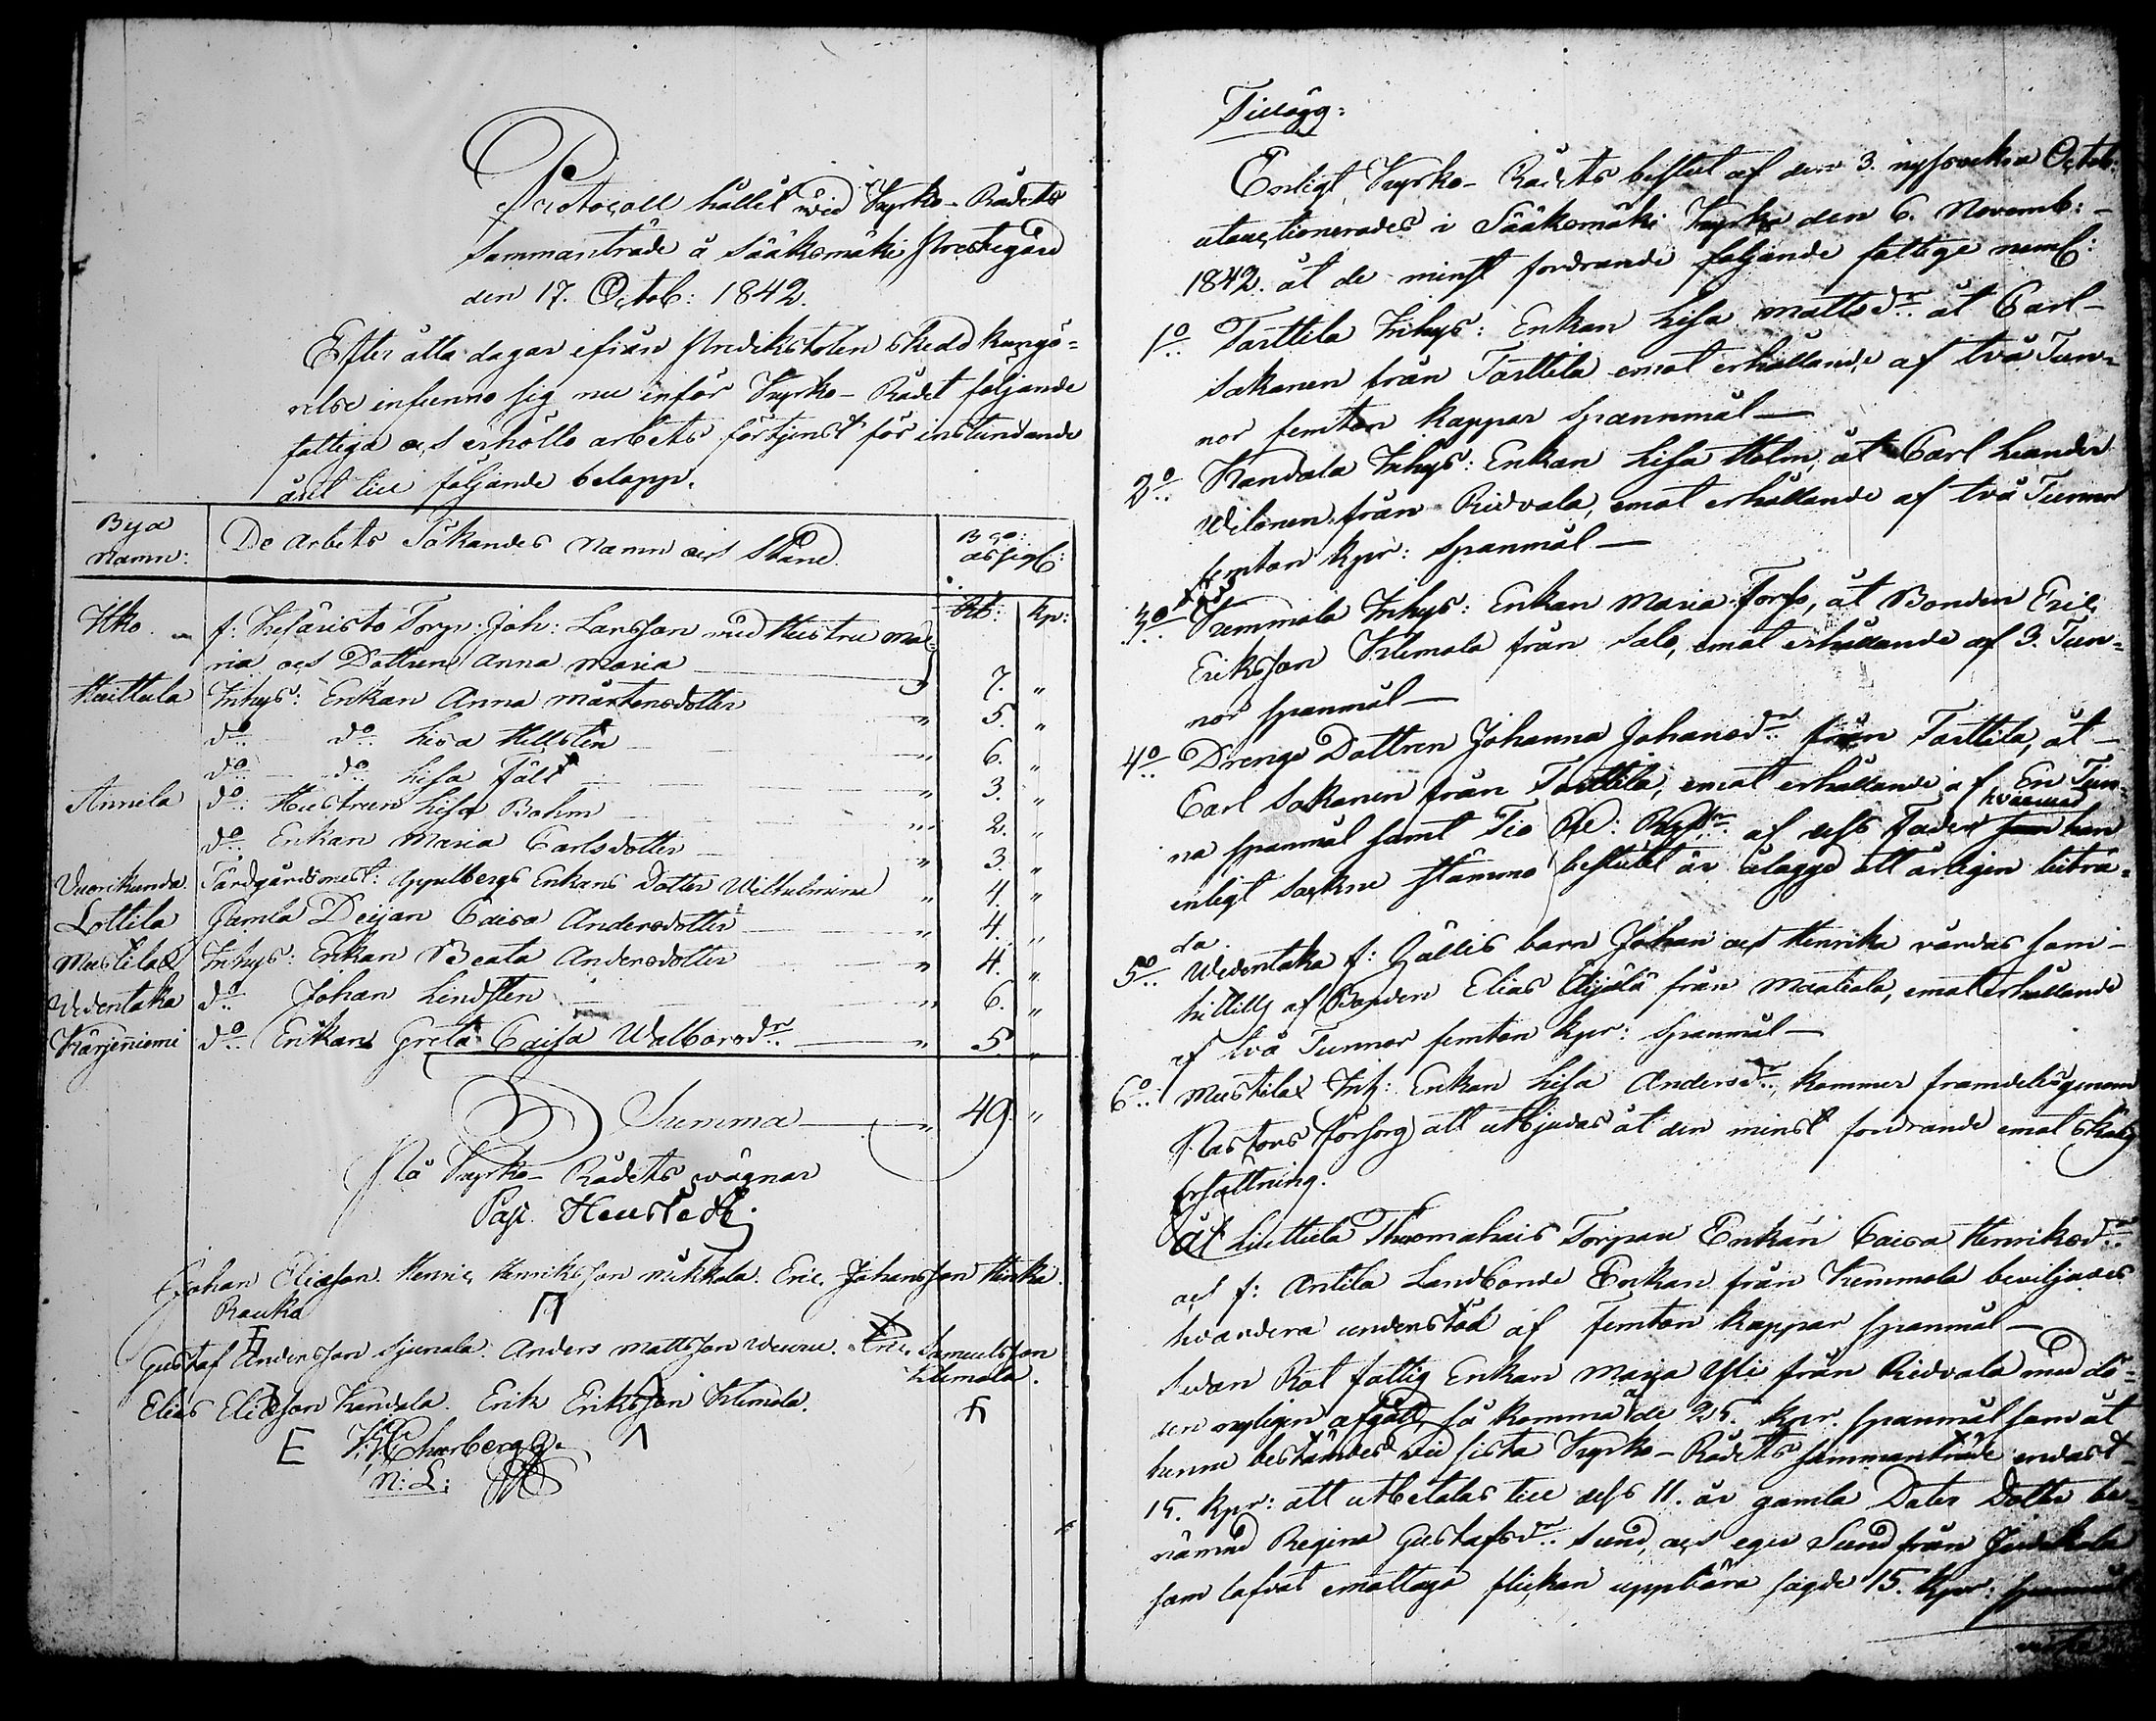 Protocoll hållit wid Kyrko-Rådets
Sammanträde å Sääksmäki Prestegård
den 17. Octob: 1842.
Efter åtta dagar ifrån Predikstolen skedd kungö-
relse infunno sig nu inför Kyrko-Rådet följande
fattiga och erhöllo arbets förtjenst för instundande
årst till följande belopp.
Bya
Namn:
De Arbets Sökandes Namn och Stånd.
Rb: Kp:
Ilko f: Torp: Joh: Larsson med Hustru Ma-
ria och Dottren Anna Maria 7. "
Huittula Inhys: Enkan Anna Mårtensdotter " 5. "
do do Lisa Hellsten " 6. "
do do Lisa Fält " 3. "
Annila do Hustrun Lisa Bohm " 2. "
do Enkan Maria Carlsdotter " 3. "
Vuorikunda Trädgårdsmest: Appelbergs Enkans Dotter Wilhelmina " 4. "
Lottila Gamla Deijan Caisa Andersdotter " 4. "
Mustila Inhys: Enkan Beata Andersdotter " 4. "
Uedentaka do Johan Lindsten " 6. "
Kärjeniemi do Enkan Greta Caisa Walborsdr " 5. "
Summa " 49. "
På Kyrko-Rådets vägnar
Johan Eliasson. Henric Henriksson Nikkola. Eric Johansson Hinka.
Rauka
Gustaf Andersson Sjunala. Anders Mattsson Wuorre. Eric Samuelsson
Klemola.
Elias Eliasson Kandala. Erik Eriksson Klemola.
E
N: L:
Tillägg:
Enligt Kyrko-Rådets beslut af den 3. nyssvekne Octob:
utauctionerades i Sääksmäki Kyrka den 6. Novemb:
1842. åt de minst fordrande följande fattige neml:
1o Tarttila Inhys: Enkan Lisa Mattsdr åt Carl
Sakanen från Tarttila emot erhållande af två Tun-
nor femton kappar Spannmål
2o Kandala Inhys: Enkan Lisa Holm, åt Carl Leander
Wilonen från Ridvala, emot erhållande af två Tunnor
femton kpr: Spanmål
3o Kemmola Inhys: Enkan Maria Forss, åt Bonden Eric
Eriksson Klemola från Salo, emot erhållande af 3. Tun-
nor spanmål
4o Drenge Dottren Johanna Johansdr från Tarttila, åt
Carl Sakanen från Tarttila, emot erhållande af En Tun-
na spanmål samt Tio af dess Fader hvarmed han
enligt Sockne Stämmo beslutet är ålagge att årligen biträ-
da.
5o Uedentaka f: Gällis barn Johan och Henrika vårdas som
hittills af Bonden Elias Äijälä från Maatiala, emot erhållande
af två Tunnor femton kpr: Spanmål
6o Mustila Inh: Enkan Lisa Andersdr kommer framdeles genom
Pastors försorg att utbjudas åt den minst fordrande emot skälig
ersättning.
Åt Liuttula Thuomahais Torpare Enkan Caisa Henriksdr
och f: Antila Landbonde Enkan från Kemmola beviljades
hvardera understöd af femton kappar spanmål
Sedan Rot fattig Enkan Maja Yli från Ridvala med dö-
den nyligen afgått, så komma af de 25. kpr. spanmål som åt
henne bestämdes vid sista Kyrko-Rådets sammanträde endast
15. kpr: att utbetalas till dess 11. år gamla Doter Dotter be-
nämnd Regina Gustafsdr Sund, och eger Sund från Juddikala
som lofvat emottaga flickan uppbära sagde 15. kpr: spanmål